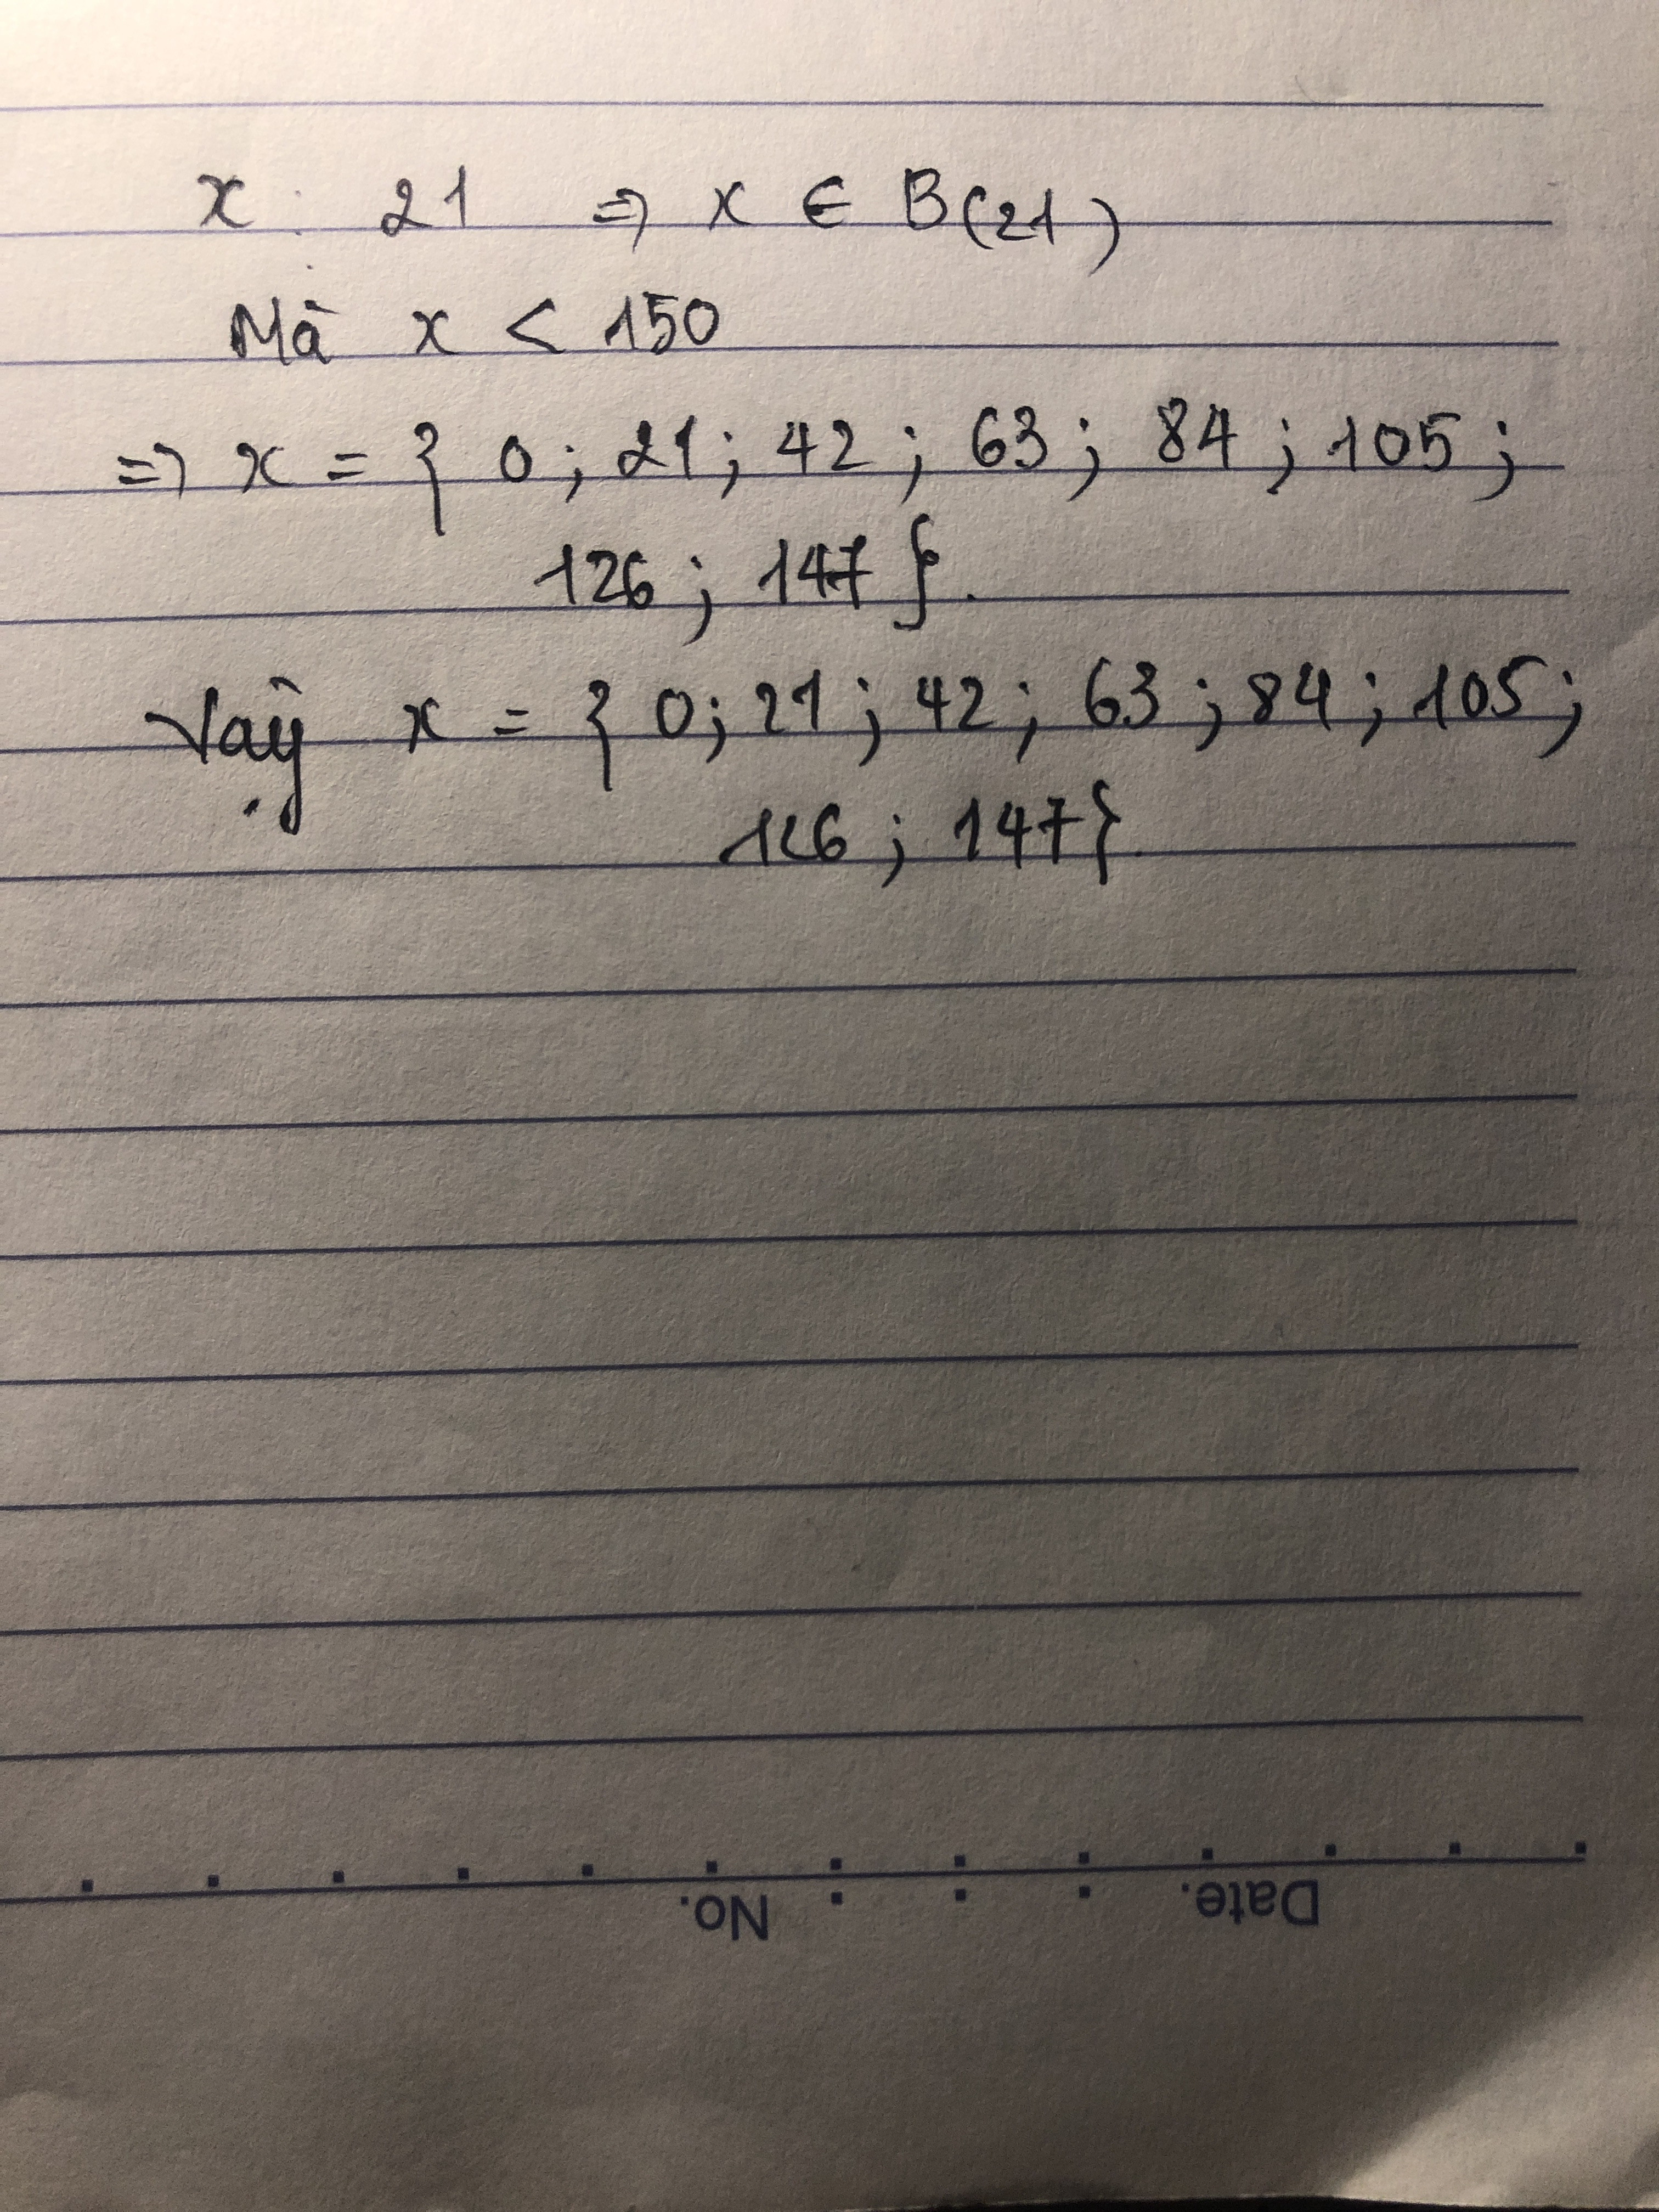 x ⋮ 21 => x ∈ B(21)
Mà x < 150
=> x = { 0 ; 21 ; 42 ; 63 ; 84 ; 105 ;
126 ; 147 }.
Vậy x = { 0 ; 21 ; 42 ; 63 ; 84 ; 105 ;
126 ; 147 }.
Date.
No.